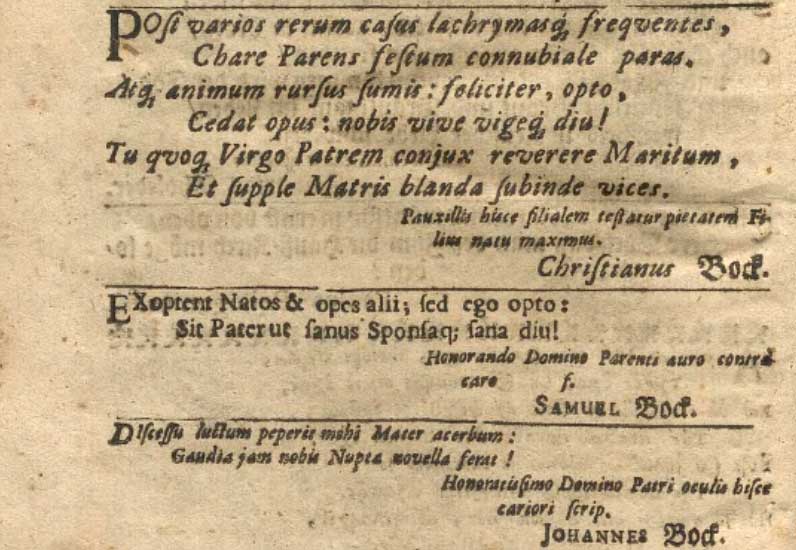 POſt varios rerum caſus lachrymasq́; freqventes,
Chare Parens feſtum connubiale paras.
Atq; animum rurſus ſumis: feliciter, opto,
Cedat opus: nobis vive vigeq́; diu!
Tu qvoq; Virgo Patrem conjux reverere Maritum,
Et ſupple Matris blanda ſubinde vices.
Pauxillis hiſce filialem teſtatur pietatem Fi-
lius natu maximus.
Chriſtianus Bock.
EXoptent Natos & opes alii; ſed ego opto:
Sit Pater ut ſanus Sponſaq; ſana diu!
Honorando Domino Parenti auro contra
caro f.
SAMUEL Bock.
DIſceſſu luctum peperit mihi Mater acerbum:
Gaudia jam nobis Nupta novella ferat!
Honoratiſſimo Domino Patri oculis hiſce
cariori ſcrip.
JOHANNES Bock.